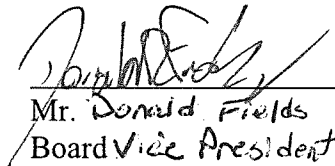 Mr. Donald Fields
Board Vice President